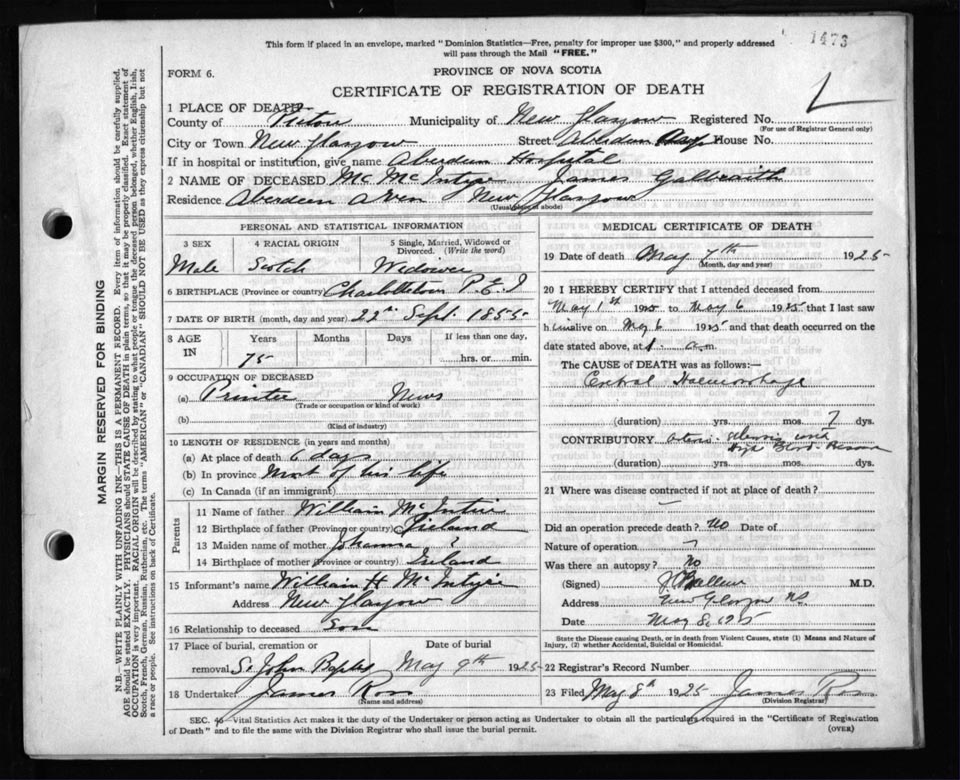 1473
This form if placed in an envelope, marked "Dominion Statistics—Free, penalty for improper use $300," and properly addressed
will pass through the Mail "FREE."
FORM 6.
PROVINCE OF NOVA SCOTIA
CERTIFICATE OF REGISTRATION OF DEATH
1 PLACE OF DEATH
County of Pictou Municipality of New Glasgow Registered No.
(For use of Registrar General only)
City or Town New Glasgow Street Aberdeen House No.
If in hospital or institution, give name Aberdeen Hospital
2 NAME OF DECEASED Mc McIntyre James Galbraith
Residence Aberdeen Aven New Glasgow
(Usual place of abode)
PERSONAL AND STATISTICAL INFORMATION
3 SEX 4 RACIAL ORIGIN 5 Single, Married, Widowed or
Divorced. (Write the word)
Male Scotch Widower
6 BIRTHPLACE (Province or country) Charlottetown P.E.I
7 DATE OF BIRTH (month, day and year) 22nd Sept. 1855
8 AGE IN Years Months Days If less than one day,
75 hrs. or min.
9 OCCUPATION OF DECEASED
(a) Printer News
(Trade or occupation or kind of work)
(b)
(Kind of industry)
10 LENGTH OF RESIDENCE (in years and months)
(a) At place of death 6 days
(b) In province Most of his life
(c) In Canada (if an immigrant)
Parents
11 Name of father William McIntire
12 Birthplace of father (Province or country) Ireland
13 Maiden name of mother Johanna ?
14 Birthplace of mother (Province or country) Ireland
15 Informant's name William H McIntyre
Address New Glasgow
16 Relationship to deceased Son
17 Place of burial, cremation or
removal St John Baptis May 9th 1925
18 Undertaker James Ross
(Name and address)
MEDICAL CERTIFICATE OF DEATH
19 Date of death May 7th 1925
(Month, day and year)
20 I HEREBY CERTIFY that I attended deceased from
May 1st 1925 to May 6 1925 that I last saw
him alive on May 6 1925 and that death occurred on the
date stated above, at 1 a.m.
The CAUSE OF DEATH was as follows:—
Cerebral Haemorrhage
(duration) yrs. mos. 7 dys.
CONTRIBUTORY Arterio sclerosis with
High Blood Pressure
(duration) yrs. mos. dys.
21 Where was disease contracted if not at place of death?
Did an operation precede death? No Date of
Nature of operation
Was there an autopsy? No
(Signed) M.D.
Address New Glasgow NS
Date May 8. 1925
State the Disease causing Death, or in death from Violent Causes, state (1) Means and Nature of
Injury, (2) whether Accidental, Suicidal or Homicidal.
22 Registrar's Record Number
23 Filed May 8th 1925 James Ross
(Division Registrar)
SEC. 40—Vital Statistics Act makes it the duty of the Undertaker or person acting as Undertaker to obtain all the particulars required in the "Certificate of Registration
of Death" and to file the same with the Division Registrar who shall issue the burial permit. (OVER)
MARGIN RESERVED FOR BINDING
N.B.—WRITE PLAINLY, WITH UNFADING INK—THIS IS A PERMANENT RECORD. Every item of information should be carefully supplied.
AGE should be stated EXACTLY. PHYSICIANS should STATE CAUSE OF DEATH in plain terms, so that it may be properly classified. Exact statement of
OCCUPATION is very important. RACIAL ORIGIN will be described by stating to what people or tongue the deceased person belonged, whether English, Irish,
Scotch, French, German, Russian, Ruthenian, etc. The terms "AMERICAN" or "CANADIAN" SHOULD NOT BE USED as they express citizenship but not
a race or people. See instructions on back of Certificate.